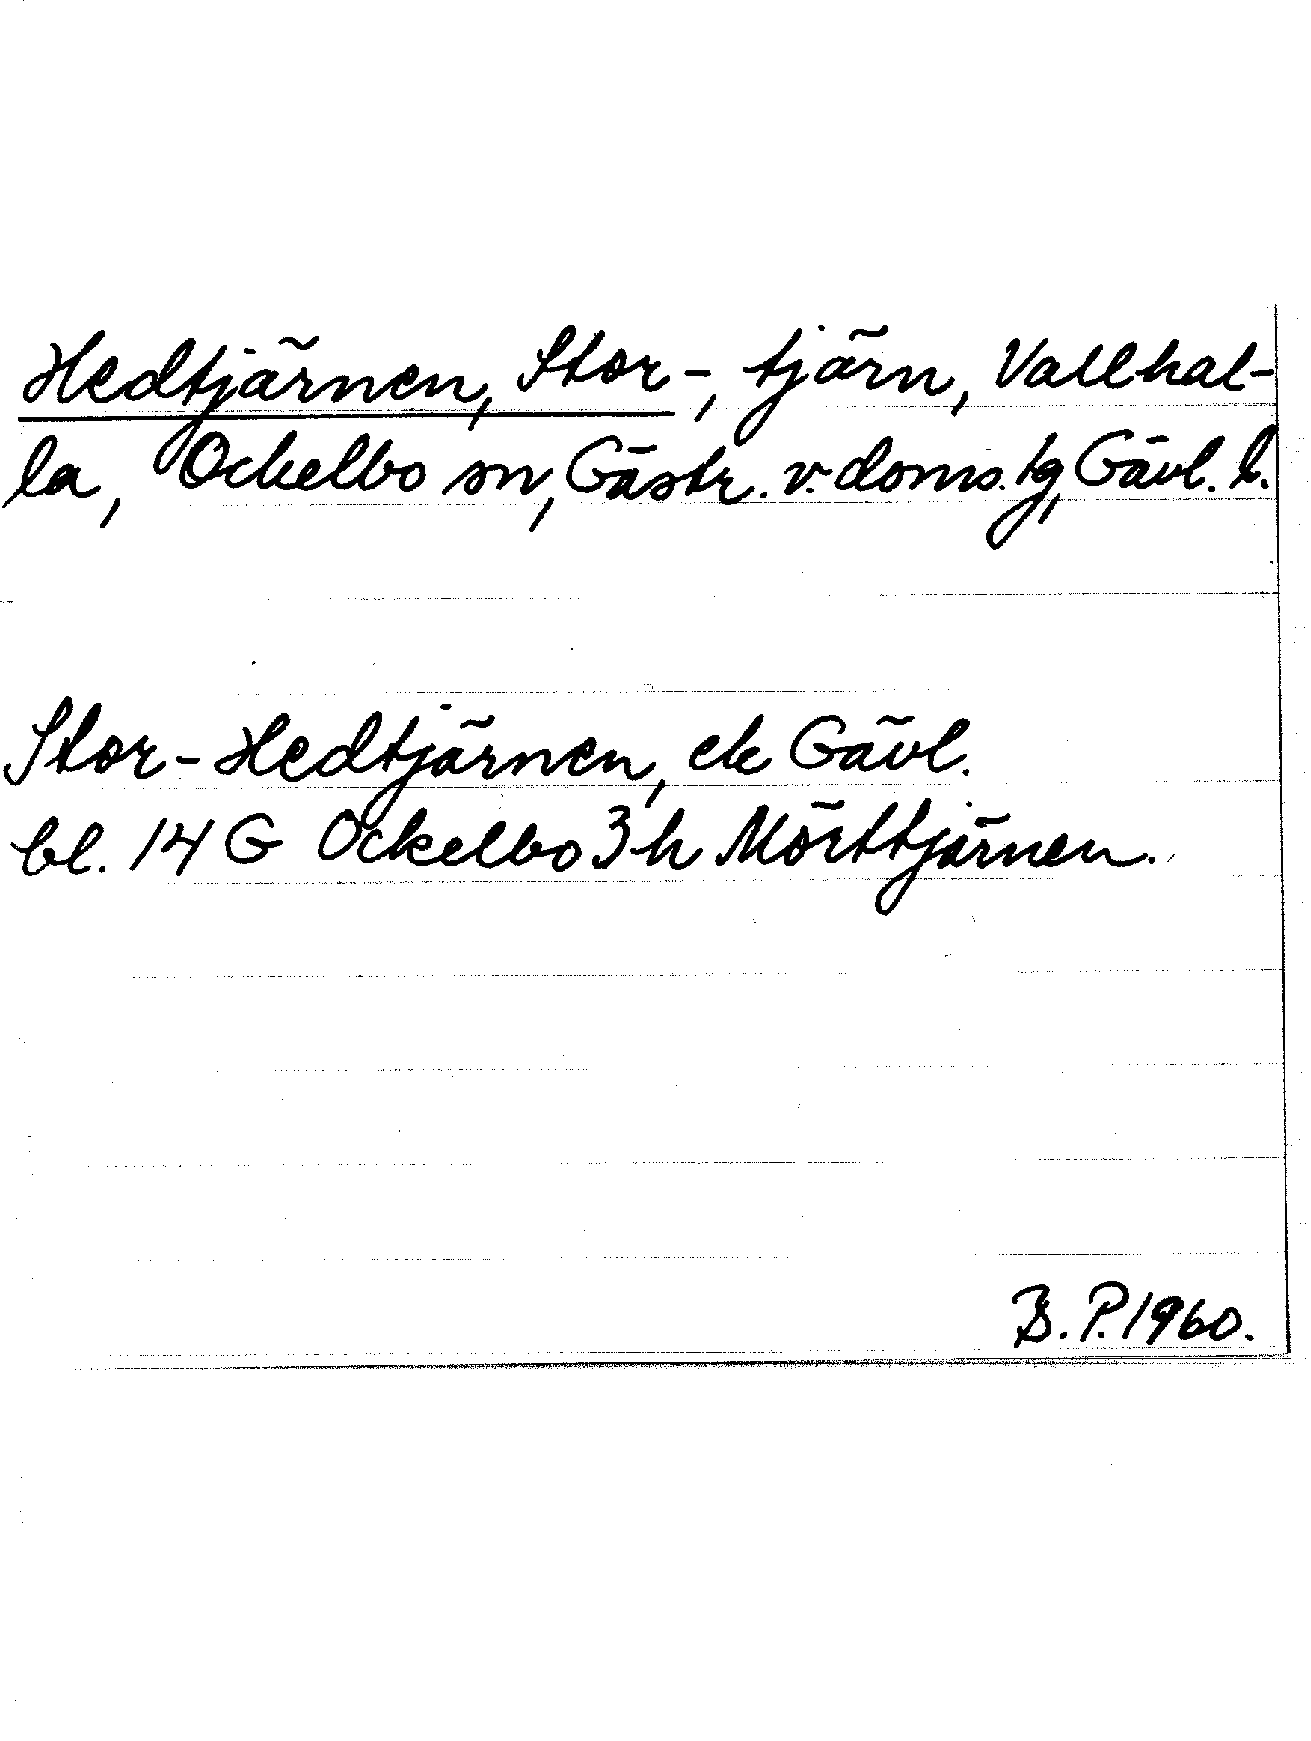 Hedtjärnen, Stor-, tjärn, Vallhal-
la, Ockelbo sn, Gästr. v. doms. tg, Gävl. l.
Stor-Hedtjärnen, ek Gävl.
bl. 14 G Ockelbo 3 h Mörttjärnen.
B. P. 1960.